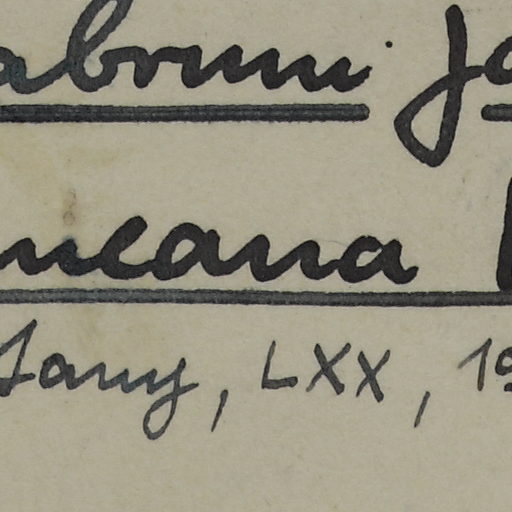 abrum ja
neana
tany, LXX, 19